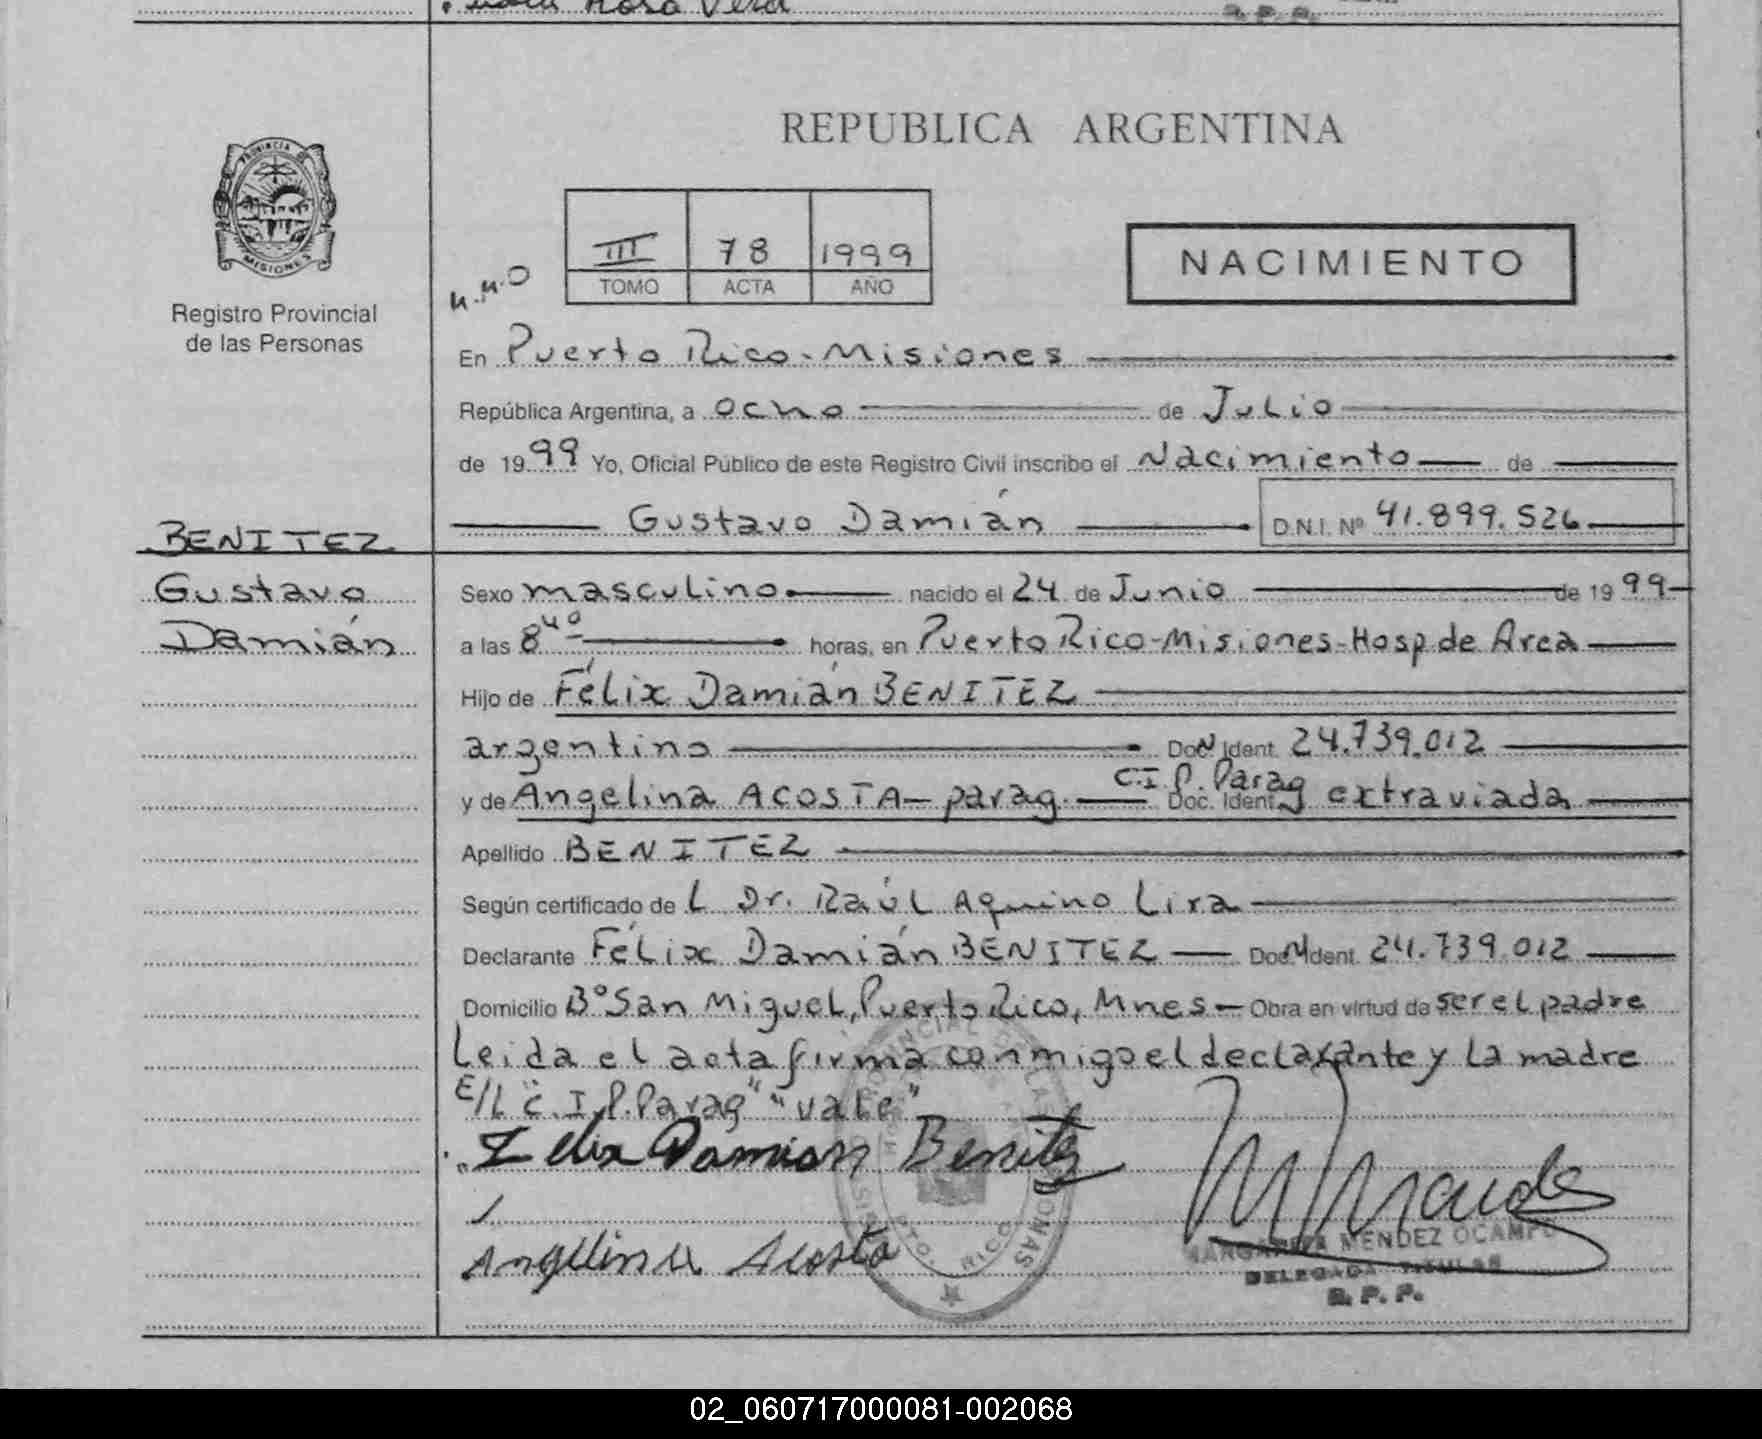 Rosa Vera
R. P. P.
REPUBLICA ARGENTINA
PROVINCIA DE
MISIONES
Registro Provincial
de las Personas
III 78 1999
TOMO ACTA AÑO
NACIMIENTO
En Puerto Rico-Misiones
República Argentina, a ocho de Julio
de 1999 Yo, Oficial Público de este Registro Civil inscribo el Nacimiento de
Gustavo Damián D.N.I. Nº 41.899.526
BENITEZ
Gustavo
Damián
Sexo masculino nacido el 24 de Junio de 1999
a las 8 40 horas, en Puerto Rico-Misiones-Hosp de Area
Hijo de Félix Damián BENITEZ
argentino Doc. Ident. 24.739.012
y de Angelina ACOSTA - parag. C.I.P. Parag Doc. Ident. extraviada
Apellido BENITEZ
Según certificado de L Dr. Raúl Aquino Lira
Declarante Félix Damián BENITEZ Doc. Ident. 24.739.012
Domicilio Bº San Miguel, Puerto Rico, Mnes - Obra en virtud de ser el padre
Leida el acta firma conmigo el declarante y la madre
E/L "C.I.P. Parag" "vale"
Felix Damian Benitez
Angelina Acosta
MARGARITA MENDEZ OCAMPO
DELEGADA TITULAR
R. P. P.
PTO. RICO
02_060717000081-002068